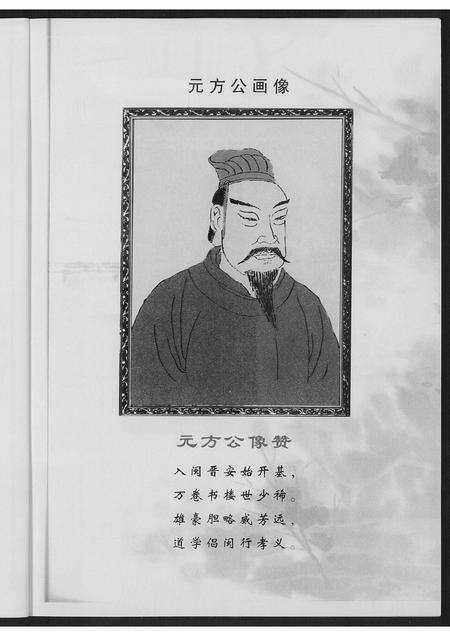 元方公画像
元方公像赞
入闽晋安始开基，
万卷书楼世少稀。
雄豪胆略威芳远，
道学倡闽行孝义。